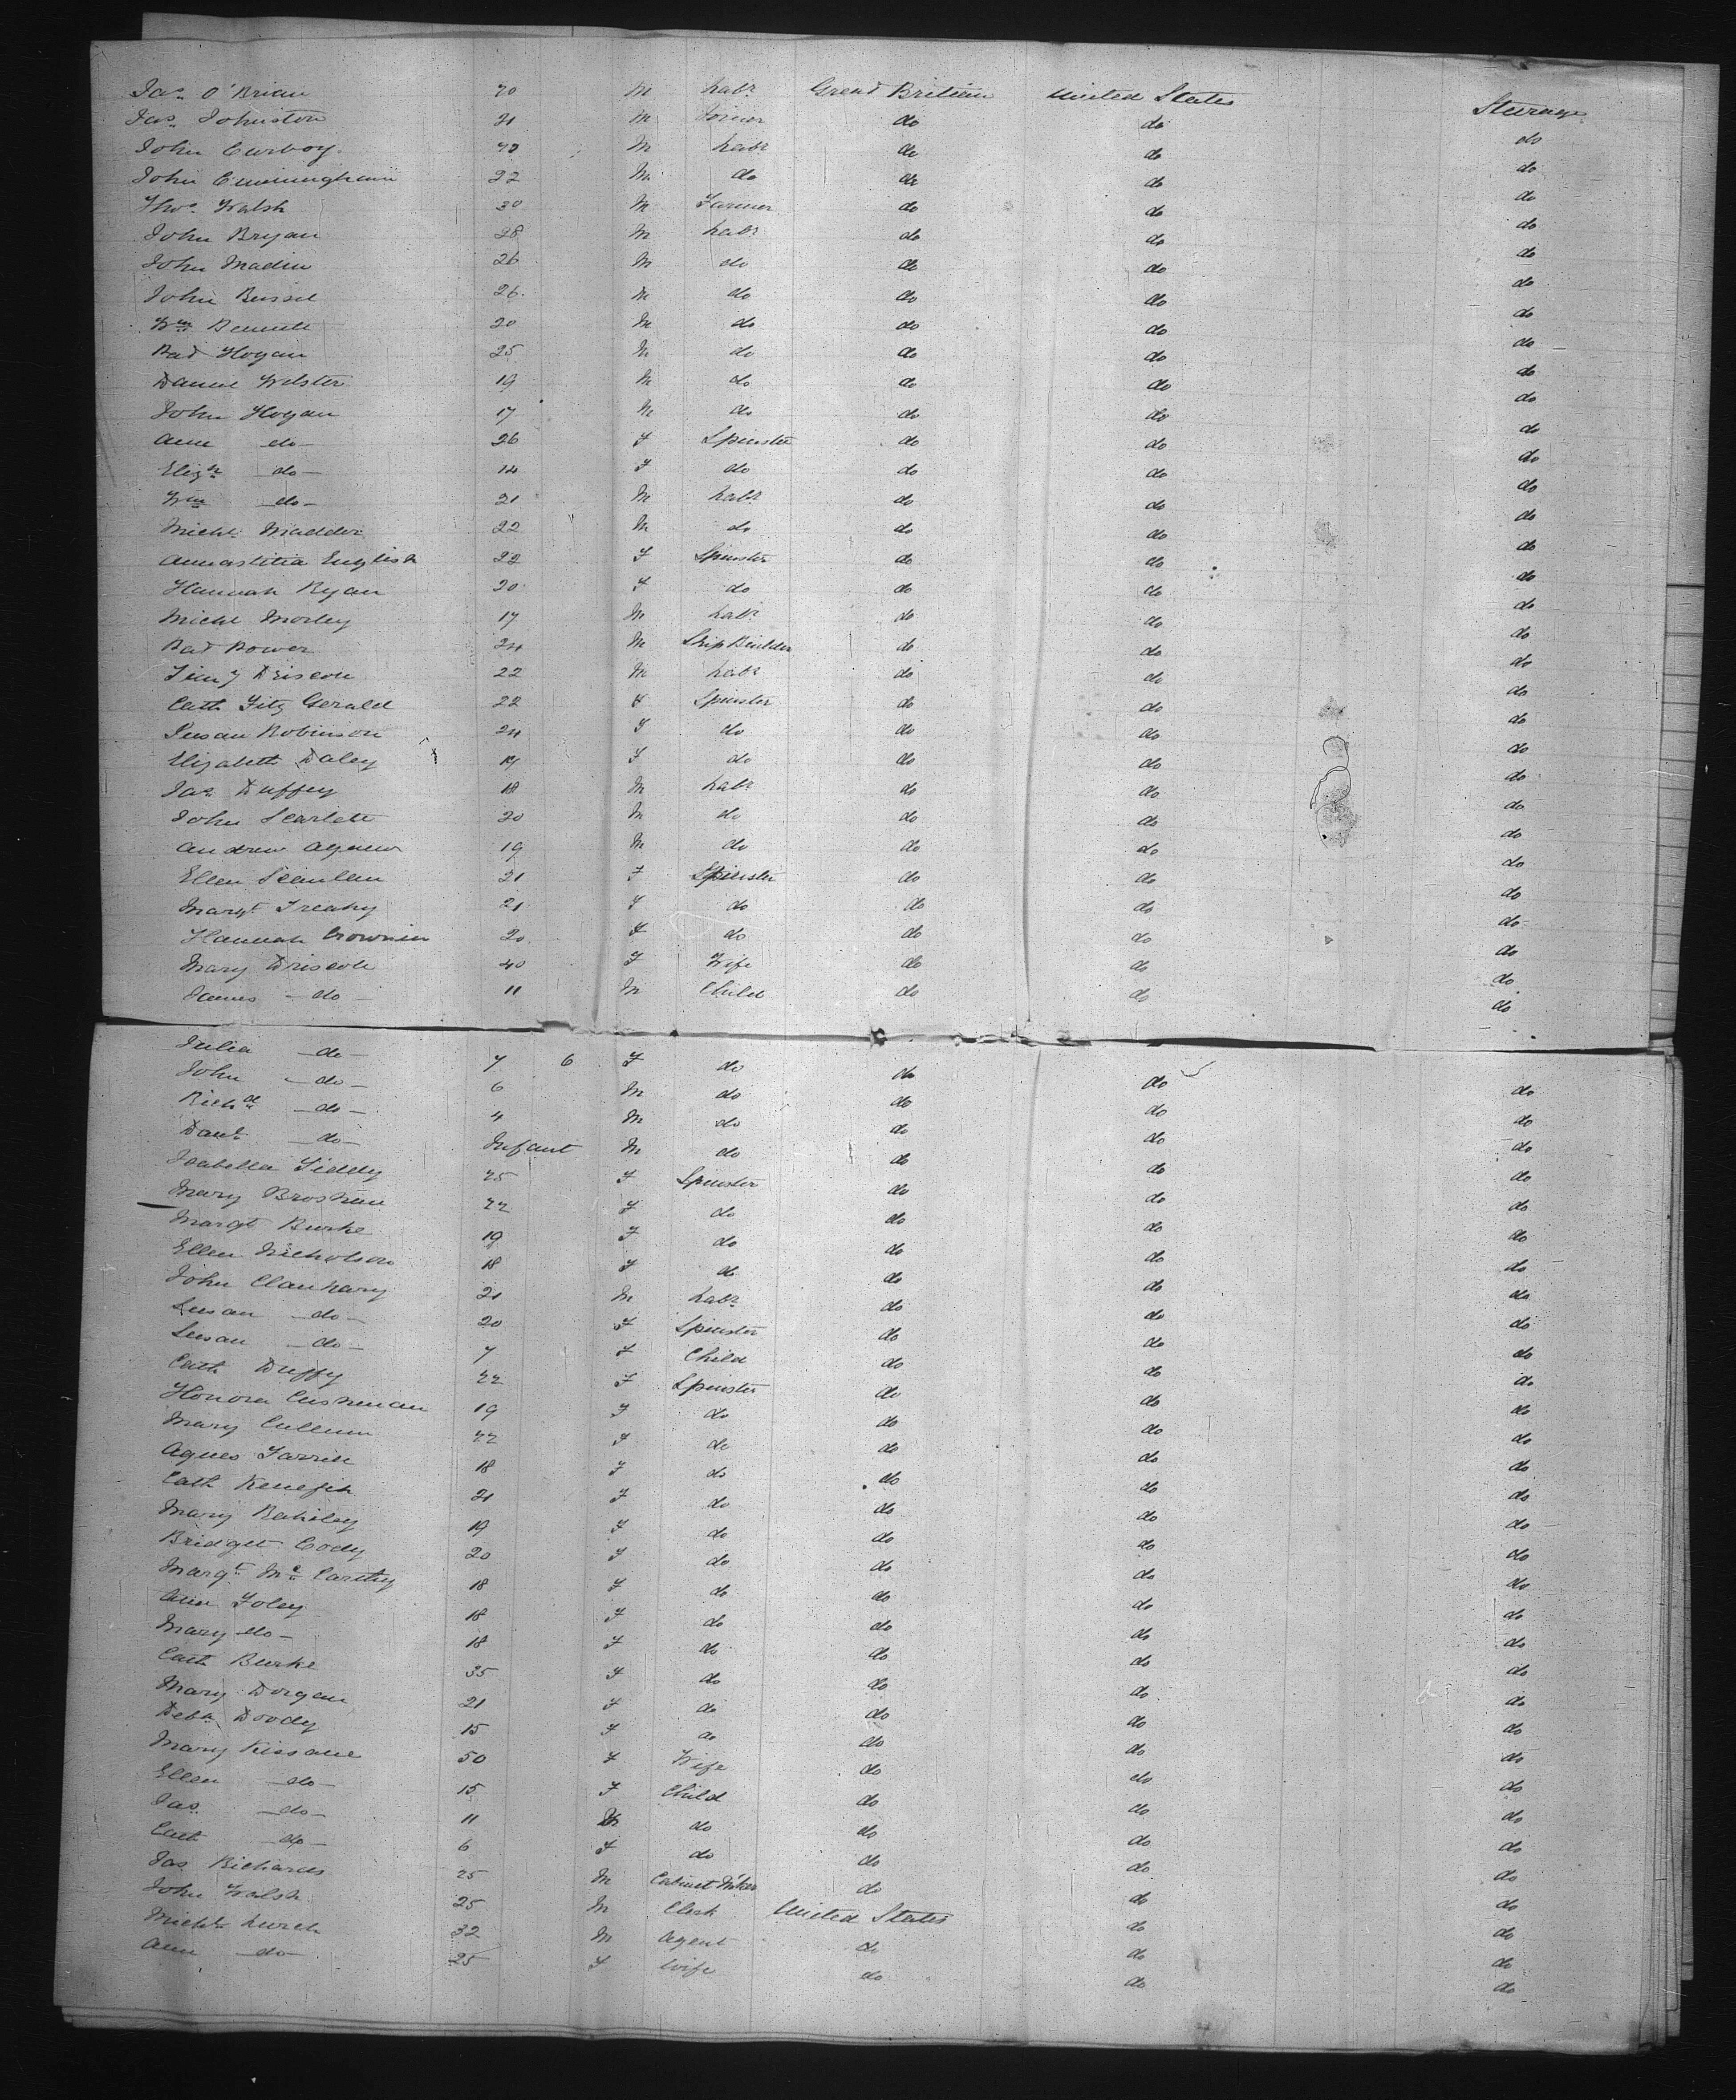 Jas. O'Brian 20 M Labr Great Britain United States Steerage
Jas. Johnston 21 M Joiner do do do
John Conboy 20 M Labr do do do
John Cunningham 22 M do do do do
Thos. Walsh 30 M Farmer do do do
John Bryan 28 M Labr do do do
John Madin 26 M do do do do
John 26 M do do do do
Wm Bennett 20 M do do do do
Pat Hogan 25 M do do do do
Daniel Webster 19 M do do do do
John Hogan 17 M do do do do
Ann do 26 F Spinster do do do
Eliza do 14 F do do do do
Wm do 21 M Labr do do do
Michl Madden 22 M do do do do
Annastitia English 22 F Spinster do do do
Hannah Ryan 20 F do do do do
Michl Morley 17 M Labr do do do
Pat Power 24 M Ship Builder do do do
Timy Driscoll 22 M Labr do do do
Cath Fitz Gerald 22 F Spinster do do do
Susan Robinson 24 F do do do do
Elizabeth Daley 19 F do do do do
Jas. Duffey 18 M Labr do do do
John Scarlett 20 M do do do do
Andrew Agnew 19 M do do do do
Ellen Scanlan 21 F Spinster do do do
Margt Treahy 21 F do do do do
Hannah Crownin 20 F do do do do
Mary Driscoll 40 F Wife do do do
James do 11 M Child do do do
Julia do 7 6 F do do do do
John do 6 M do do do do
Richd do 4 M do do do do
Danl do Infant M do do do do
Isabella Liddy 25 F Spinster do do do
Mary Brosnan 22 F do do do do
Margt Burke 19 F do do do do
Ellen Nicholson 18 F do do do do
John Clanhary 21 M Labr do do do
Susan do 20 F Spinster do do do
Susan do 7 F Child do do do
Cath Duffy 22 F Spinster do do do
Honora Cushman 19 F do do do do
Mary Cullum 22 F do do do do
Agnes 18 F do do do do
Cath Kenefick 21 F do do do do
Mary 19 F do do do do
Bridget Cody 20 F do do do do
Margt Mc Carthy 18 F do do do do
Ann Foley 18 F do do do do
Mary do 18 F do do do do
Cath Burke 35 F do do do do
Mary Dorgan 21 F do do do do
Debh Doody 15 F do do do do
Mary Kissane 50 F Wife do do do
Ellen do 15 F Child do do do
Jas. do 11 M do do do do
Cath do 6 F do do do do
Jas Richards 25 M Cabinet Mker do do do
John Walsh 25 M Clerk United States do do
Michl Lynch 32 M Agent do do do
Ann do 25 F Wife do do do